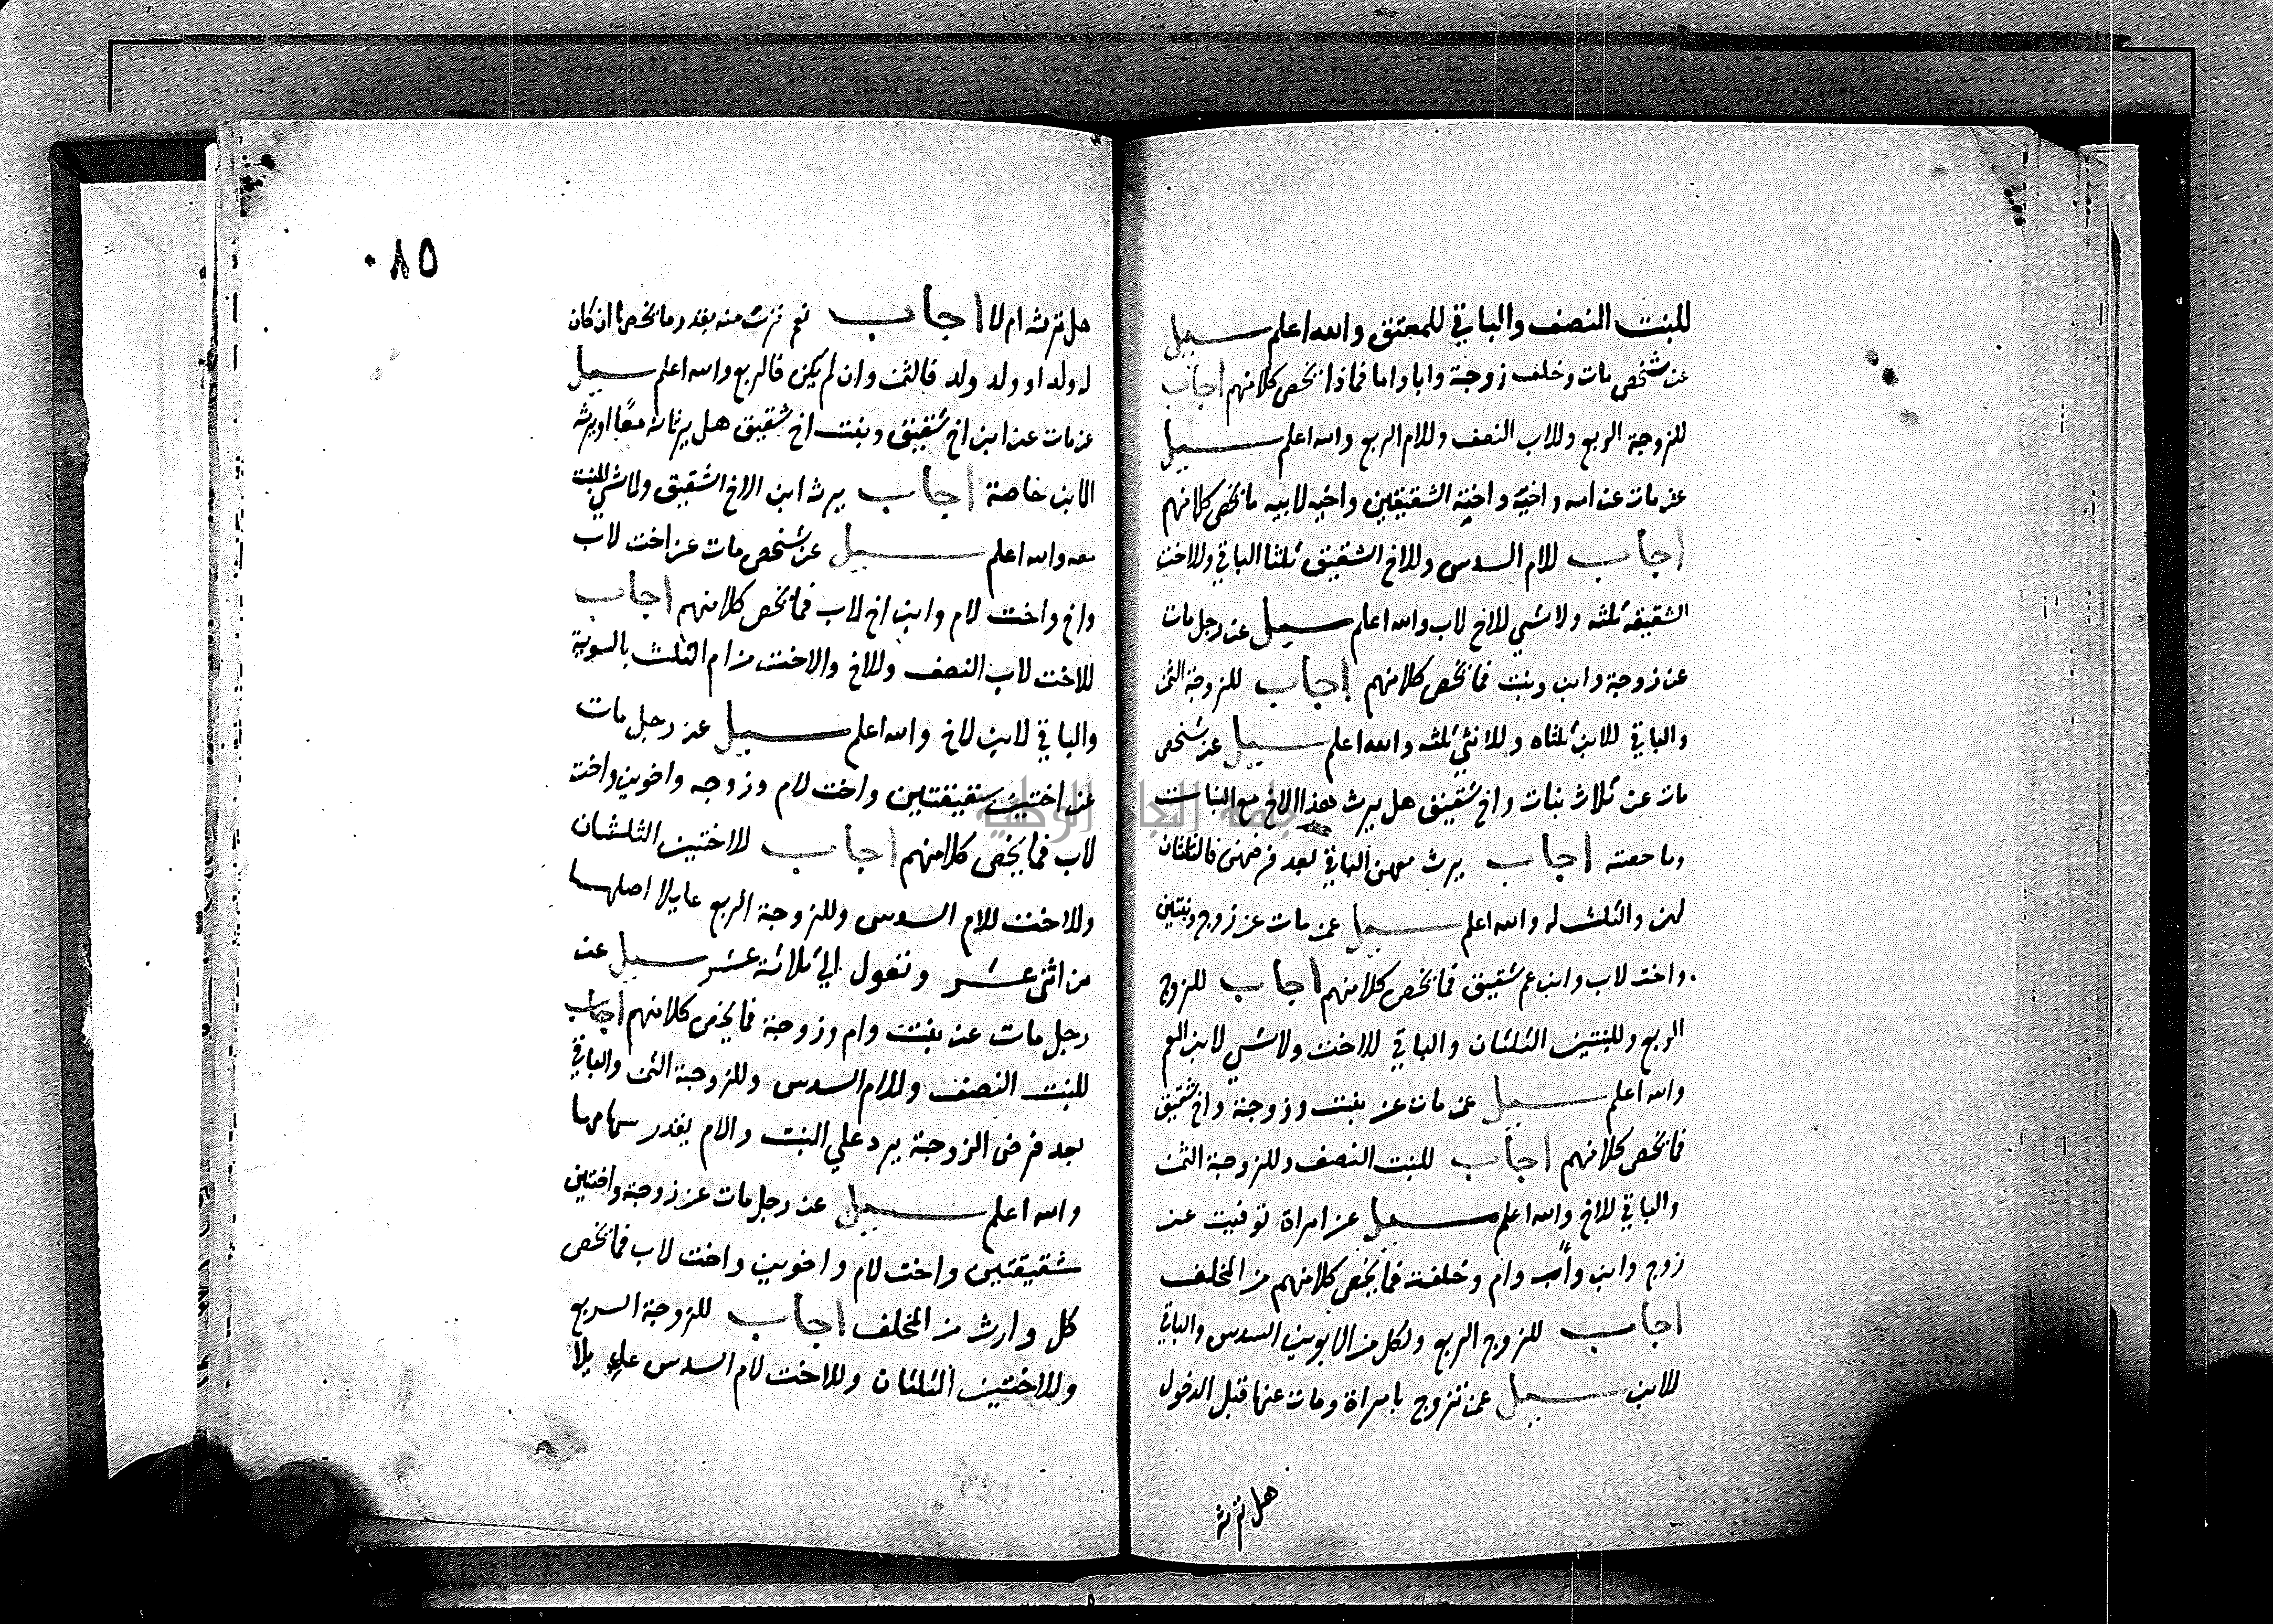 للبنت النصف والباقي للمعتق والله اعلم سيل
عن شخص مات وخلف زوجة وابا واما فماذا يخص كلا منهم اجاب
للزوجة الربع وللاب النصف وللام الربع والله اعلم سيل
عن مات عن امه واخيه واخته الشقيقين واخيه لابيه ما يخص كلا منهم
اجاب للام السدس وللاخ الشقيق ثلثا الباقي وللاخت
الشقيقه ثلثه ولا شي للاخ لاب والله اعلم سيل عن رجل مات
عن زوجة وابن وبنت فما يخص كلا منهم اجاب للزوجة الثمن
والباقي للابن ثلثاه وللانثي ثلثه والله اعلم سيل عن شخص
مات عن ثلاث بنات واخ شقيق هل يرث هذا الاخ مع البنات
وما حصته اجاب يرث معهن الباقي بعد فرضهن فالثلثان
لهن والثلث له والله اعلم سيل عمن مات عن زوج وبنتين
واخت لاب وابن عم شقيق فما يخص كلا منهم اجاب للزوج
الربع وللبنتين الثلثان والباقي للاخت ولا شي لابن العم
والله اعلم سيل عمن مات عن بنت وزوجة واخ شقيق
فما يخص كلا منهم اجاب للبنت النصف وللزوجة الثمن
والباقي للاخ والله اعلم سيل عن امراة توفيت عن
زوج وابن وأب وام وخلفت فما يخص كلا منهم من المخلف
اجاب للزوج الربع ولكل من الابوين السدس والباقي
للابن سيل عمن تزوج بامراة ومات عنها قبل الدخول
هل ترثه
٠٨٥
هل ترثه ام لا اجاب نعم ترث منه بقدر ما يخصها ان كان
له ولد او ولد ولد فالثمن وان لم يكن فالربع والله اعلم سيل
عن مات عن ابن اخ شقيق وبنت اخ شقيق هل يرثانه معًا او يرثه
الابن خاصة اجاب يرثه ابن الاخ الشقيق ولا شي للبنت
معه والله اعلم سيل عن شخص مات عن اخت لاب
واخ واخت لام وابن اخ لاب فما يخص كلا منهم اجاب
للاخت لاب النصف وللاخ والاخت من ام الثلث بالسوية
والباقي لابن لاخ والله اعلم سيل عن رجل مات
عن اختين شقيقتين واخت لام وزوجه واخوين واخت
لاب فما يخص كلا منهم اجاب للاختين الثلثان
وللاخت للام السدس وللزوجة الربع عايلا اصلها
من اثني عشر وتعول الي ثلاثة عشر سيل عن
رجل مات عن بنت وام وزوجة فما يخص كلا منهم اجاب
للبنت النصف وللام السدس وللزوجة الثمن والباقي
بعد فرض الزوجة يرد علي البنت والام بقدر سهامهما
والله اعلم سيل عن رجل مات عن زوجة واختين
شقيقتين واخت لام واخوين واخت لاب فما يخص
كل وارث من المخلف اجاب للزوجة الربع
وللاختين الثلثان وللاخت لام السدس عايلا